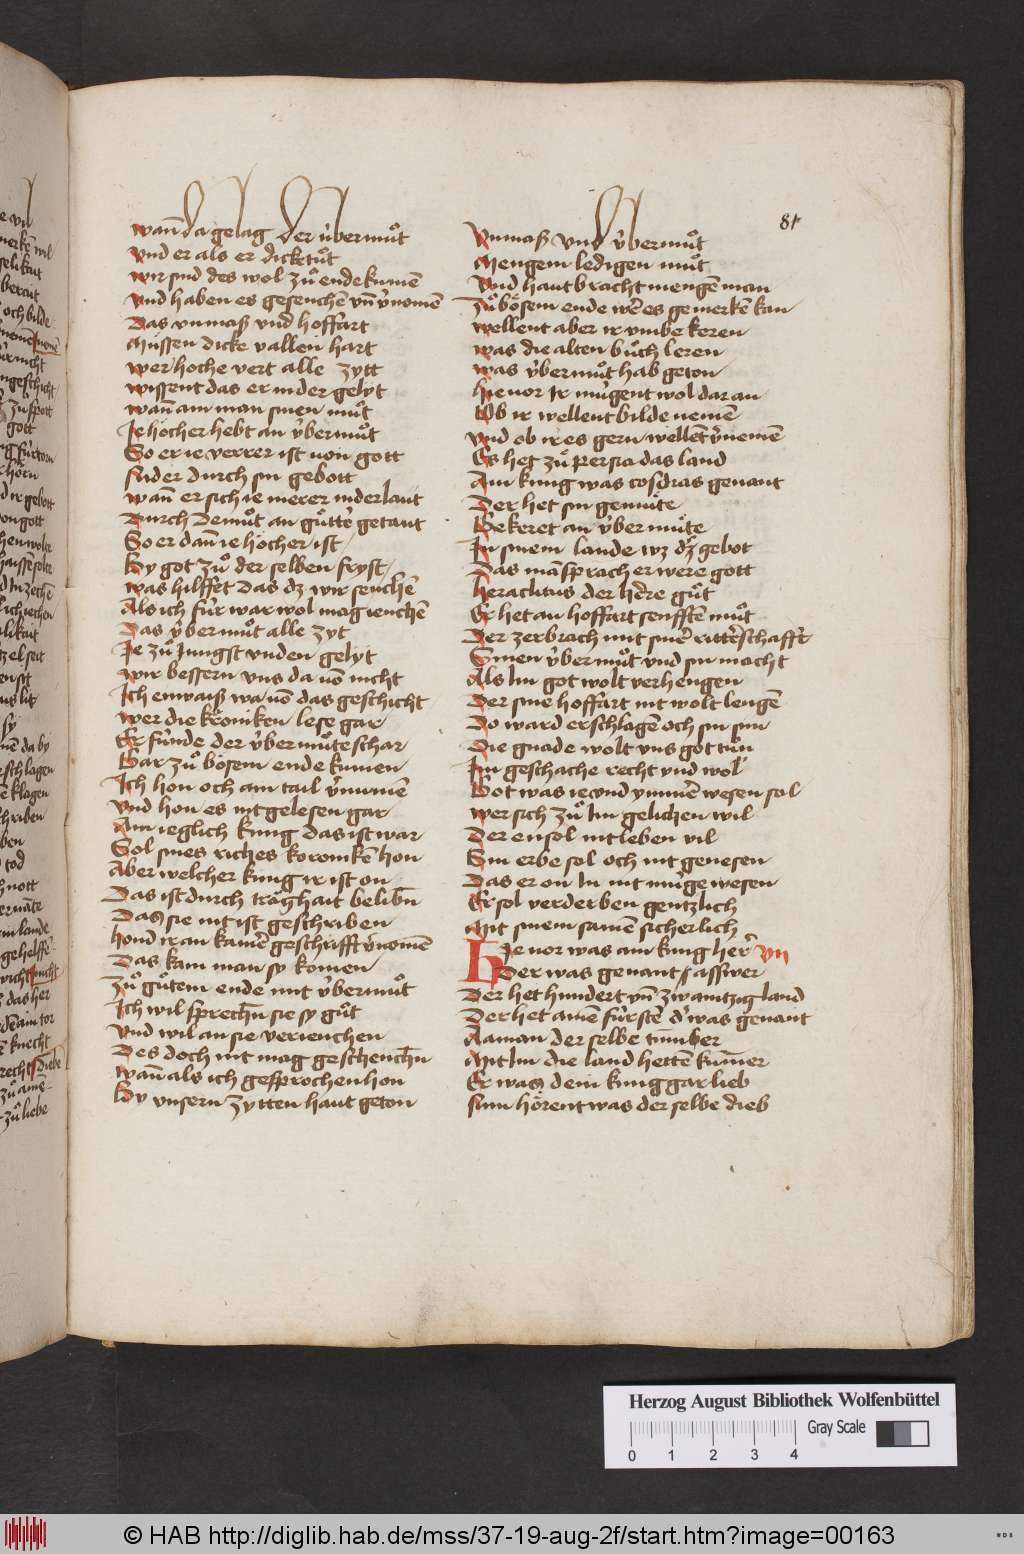 81
wann̄ da gelag der v̊bermůt
vnd er als er dicke tůt
wir sind des wol zů ende kumē
vnd haben es gesenchē vn̄ v̓nomen
Das vnmaß vnd hoffart
Müssen dicke vallen hart
wer hoche vert alle zytt
wissent das er nider gelyt
wan̄ ain man sinen můt
Je hocher hebt an v̊bermůt
So er ie verrer ist von gott
snider durch sin gebott
wan̄ er sich ie merer nider laut
Durch Demůt an gůtte getaut
So er dan̄ ie hocher ist
By got zů der selben fryst
was hilffet das dz wir senchē
Als ich für war wol mag ienchē
Das v̊bermůt alle zyt
Je zů Jungst vnden gelyt
wir bessern vns da vō nicht
Ich enwaiß wa vō das geschicht
wer die kroniken lese gar
Er funde der v̊bermůte schar
Gar zů bösem ende kumen
Ich hon och ain tail v̓numē
vnd hon es nit gelesen gar
Ain ieglich kung das ist war
Sol sines riches koronikē hon
Aber welcher kung ir ist on
Das ist durch traghait belibn̄
Das sie nit ist geschriben
hond ir an kainē geschrifft v̓nomē
Das kain man sy komen
zů gůtem ende mit v̊bermůt
Ich wil sprechn̄ sie sy gůt
vnd wil an sie verienchen
Des doch nit mag geschenchn̄
wan̄ als ich gesprochen hon
By vnsern zytten haut geton
Vnmaß vnd v̊bermůt
Mengem ledigen můt
Vnd haut bracht mengē man
Zů bösem ende wē es gemerkē kan
wellent aber ir vmbe keren
was die alten bůch leren
was v̊bermůt hab geton
hieuor Ir mügent wol dar an
Ob ir wellent bilde nemē
vnd ob ir es gern wellēt v̓nemē
Es het zů persia das land
Ain kung was cosdras genant
Der het sin gemüte
Bekeret an v̊bermůte
In sinem lande wz dz gebot
Das mā sprach er were gott
heraclius der hēre gůt
Er het an hoffart senfftē můt
Der zerbrach mit sinē ritterschafft
Sinen v̊bermůt vnd sin macht
Als Im got wolt verhengen
Der sine hoffart nit wolt lengē
Do ward erschlagē och sin sun
Die gnade wolt vns got tůn
Im geschache recht vnd wol
Got was ie vnd ymmē wesen sol
wer sich zů Im gelichen wil
Der ensol nit leben vil
Sin erbe sol och nit genesen
Das er on In nit müge wesen
Er sol verderben gentzlich
Mit sinem samē sicherlich
Hie vor was ain kung her vn
Der was genant asswer
Der het hundert vn̄ zwaintzig land
Der het ainē fürstē d̓ was genant
Aaman der selbe tumber
Mit Im die land hettē kum̄er
Er was dem kung gar lieb
Nun hörent was der selbe dieb
Herzog August Bibliothek Wolfenbüttel
Gray Scale
0 1 2 3 4
© HAB http://diglib.hab.de/mss/37-19-aug-2f/start.htm?image=00163
WDB